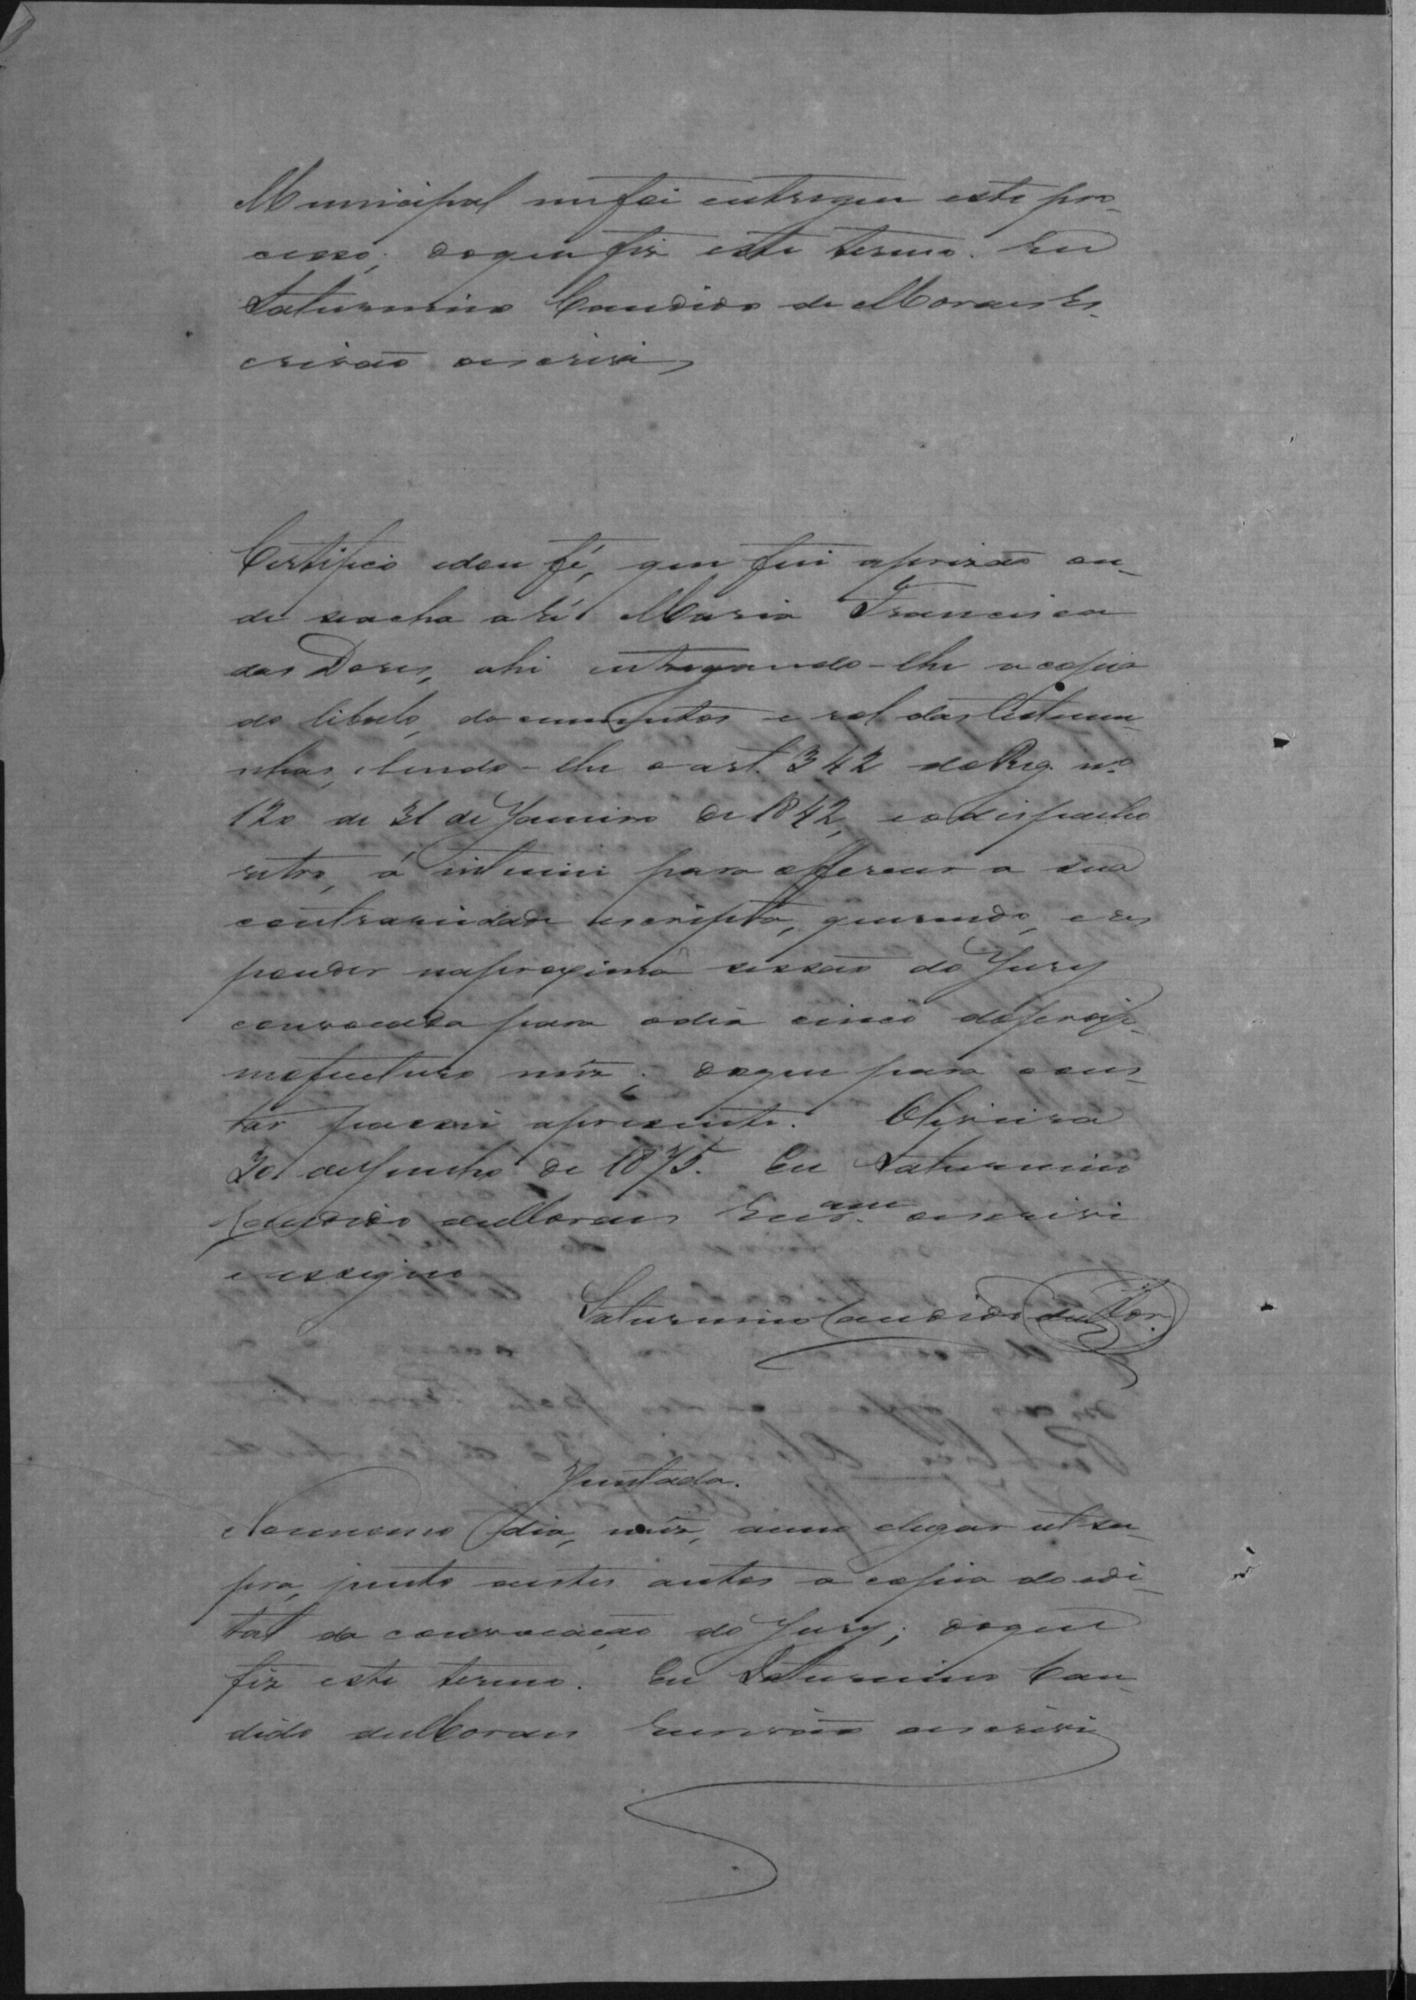 Municipal me foi entregue este pro-
cesso; do que fiz este termo. Eu
Saturnino Candido de Moraes Es-
crivão o escrivi
Certifico e dou fé, que fui a prizão on-
de se acha a ré Maria Francisca
das Dores, ahi entregando-lhe a copia
do libello, documentos e rol das testemu-
nhas, e lendo-lhe o art. 342 do Reg. nº
120 de 31 de Janeiro de 1842, e o dispacho
retro, á intimei para offerecer a sua
contrariedade escripta, querendo, e res
ponder na proxima sessão do Jury
convocada para o dia cinco do proxi-
mo futuro mez; do que para cons-
tar passei a presente. Oliveira
30 de Junho de 1875. Eu Saturnino
Candido de Moraes Escr.am o escrivi
e assigno
Saturnino Candido de Mor.
Juntada.
No mesmo dia, mez, anno e lugar ut su-
pra, junto a estes autos a copia do edi-
tal da convocação do Jury; do que
fiz este termo. Eu Saturnino Can-
dido de Moraes Escrivão o escrivi